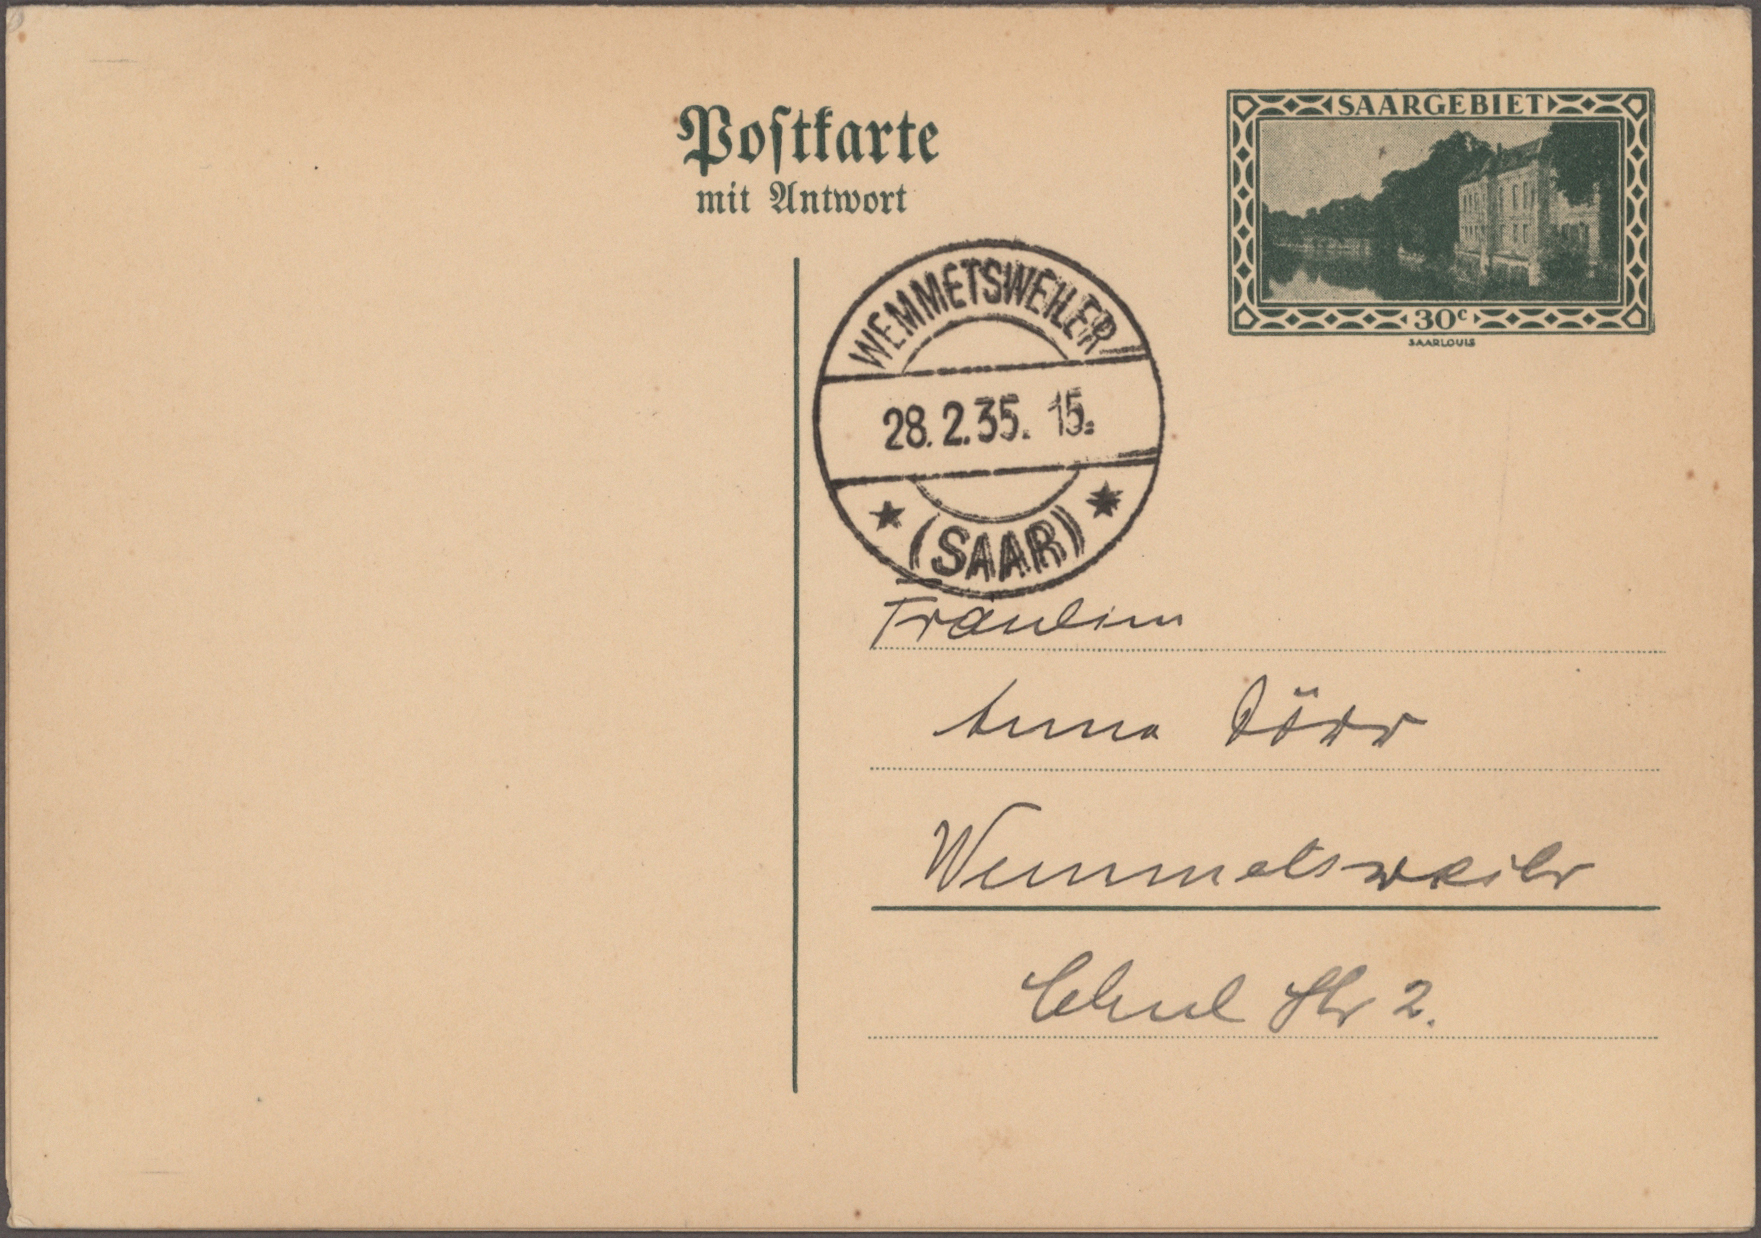 Postkarte
mit Antwort
SAARGEBIET
30c
SAARLOUIS
WEMMETSWEILER
28.2.35. 15.
(SAAR)
Fräulein
Anna Dörr
Wemmetsweiler
Schul Str 2.